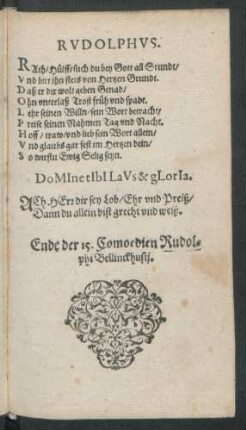 RVDOLPHVS.
RAth/Hülff/such du bey Gott all Stundt/
Vnd bitt ihn stets von Hertzen Grundt.
Daß er dir wolt geben Genad/
Ohn vnterlaß Trost früh vnd spadt.
Lehr seinen Willn/sein Wort betracht/
Preise seinen Nahmen Tag vnd Nacht.
Hoff/traw/vnd lieb sein Wort allein/
Vnd glaubs gar fest im Hertzen dein/
So wirstu Ewig Selig seyn.
DoMIne tIbI LaVs & gLorIa.
ACh HErr dir sey Lob/Ehr vnd Preiß/
Dann du allein bist grecht vnd weiß.
Ende der 15. Comoedien Rudol-
phi Bellinckhusij.